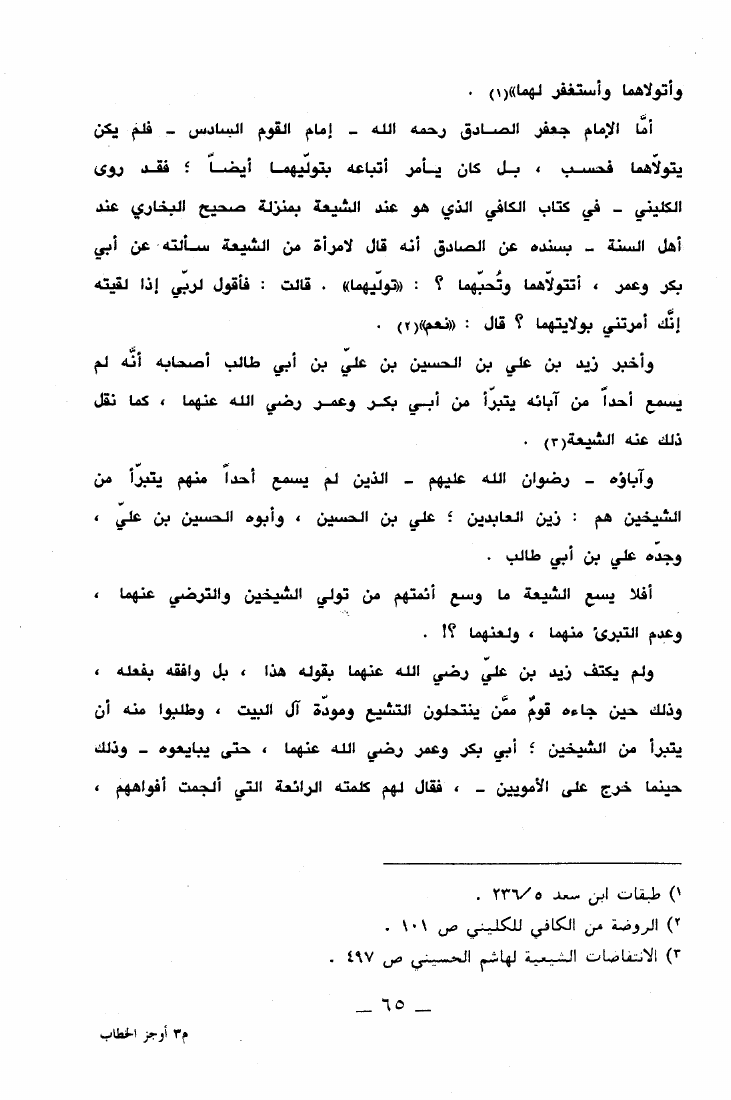 وأتولاهما وأستغفر لهما»(١) .
أمَّا الإمام جعفر الصادق رحمه الله ـ إمام القوم السادس ـ فلم يكن
يتولاّهما فحسب ، بل كان يأمر أتباعه بتولّيهما أيضاً ؛ فقد روى
الكليني ـ في كتاب الكافي الذي هو عند الشيعة بمنزلة صحيح البخاري عند
أهل السنة ـ بسنده عن الصادق أنه قال لامرأة من الشيعة سألته عن أبي
بكر وعمر ، أتتولاّهما وتُحبّهما ؟ : «تولّيهما» . قالت : فأقول لربّي إذا لقيته
إنَّك أمرتني بولايتهما ؟ قال : «نعم»(٢) .
وأخبر زيد بن علي بن الحسين بن عليّ بن أبي طالب أصحابه أنَّه لم
يسمع أحداً من آبائه يتبرّأ من أبي بكر وعمر رضي الله عنهما ، كما نقل
ذلك عنه الشيعة(٣) .
وآباؤه ـ رضوان الله عليهم ـ الذين لم يسمع أحداً منهم يتبرّأ من
الشيخين هم : زين العابدين ؛ علي بن الحسين ، وأبوه الحسين بن عليّ ،
وجدّه علي بن أبي طالب .
أفلا يسع الشيعة ما وسع أئمتهم من تولي الشيخين والترضي عنهما ،
وعدم التبرئ منهما ، ولعنهما ؟! .
ولم يكتف زيد بن عليّ رضي الله عنهما بقوله هذا ، بل وافقه بفعله ،
وذلك حين جاءه قومٌ ممَّن ينتحلون التشيع ومودّة آل البيت ، وطلبوا منه أن
يتبرأ من الشيخين ؛ أبي بكر وعمر رضي الله عنهما ، حتى يبايعوه ـ وذلك
حينما خرج على الأمويين ـ ، فقال لهم كلمته الرائعة التي ألجمت أفواههم ،
١) طبقات ابن سعد ٢٣٦/٥ .
٢) الروضة من الكافي للكليني ص ١٠١ .
٣) الانتفاضات الشيعية لهاشم الحسيني ص ٤٩٧ .
ـ ٦٥ ـ
م٣ أوجز الخطاب